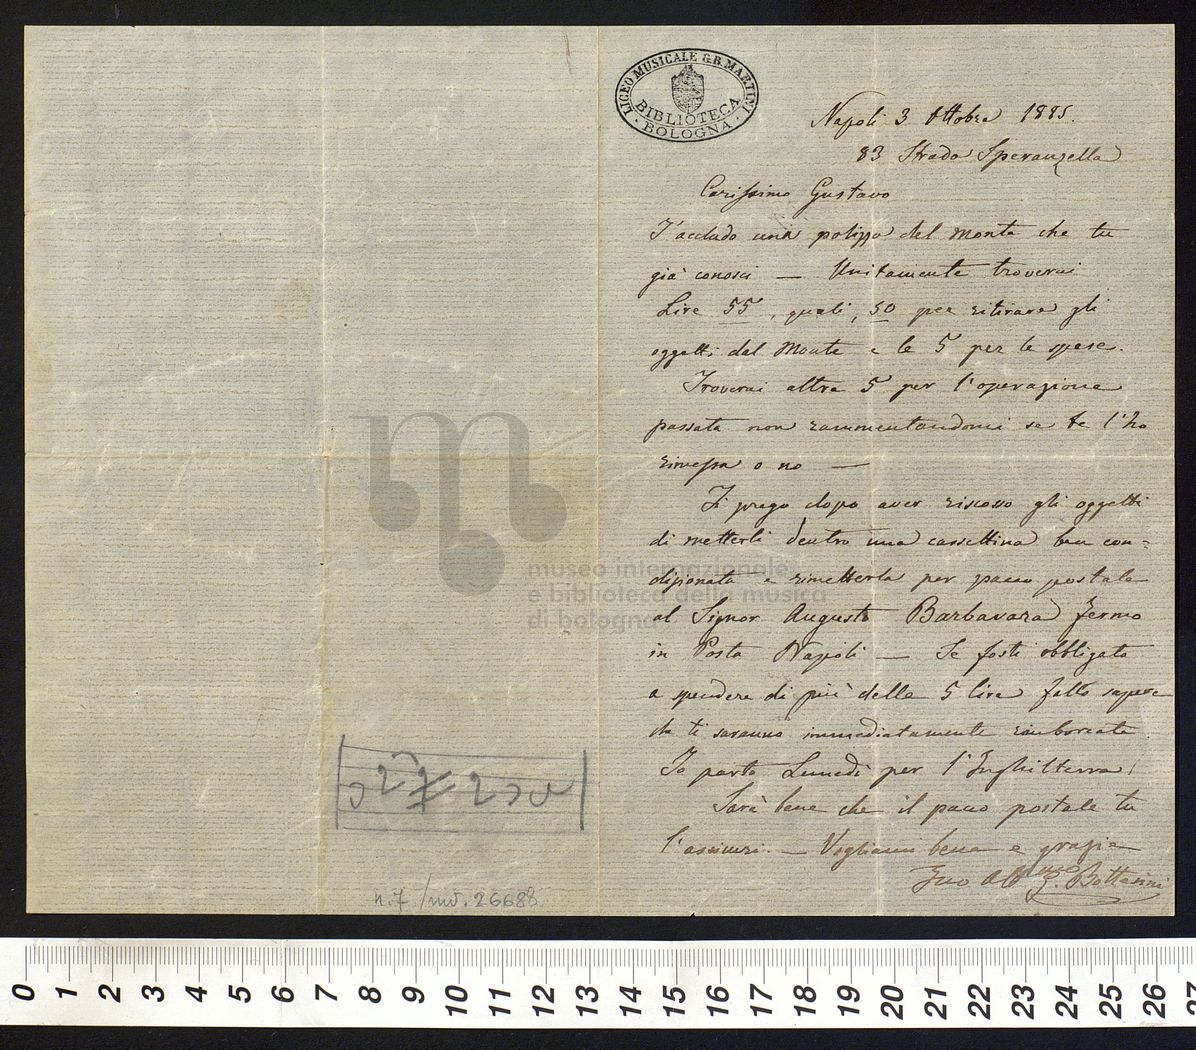 LICEO MUSICALE G.B. MARTINI
BIBLIOTECA
BOLOGNA
Napoli 3 Ottobre 1885.
83 Strada Speranzella
Carissimo Gustavo
T'accludo una polizza del Monte che tu
già conosci — Unitamente troverai
Lire 55, quali, 50 per ritirare gli
oggetti dal Monte e le 5 per le spese.
Troverai altre 5 per l'operazione
passata non rammentandomi se te l'ho
rimessa o no —
Ti prego dopo aver riscosso gli oggetti
di metterli dentro una cassettina ben con=
dizionata e rimetterla per pacco postale
al Signor Augusto Barbavara fermo
in Posta Napoli — Se fosti obbligato
a spendere di più delle 5 lire fallo sapere
che ti saranno immediatamente rimborsate.
Io parto Lunedì per l'Inghilterra,
Sarà bene che il pacco postale tu
l'assicuri. — Vogliami bene e grazie
Tuo Aff.mo G. Bottesini
museo internazionale
e biblioteca della musica
di bologna
n.7 / inv. 26688
0 1 2 3 4 5 6 7 8 9 10 11 12 13 14 15 16 17 18 19 20 21 22 23 24 25 26 27